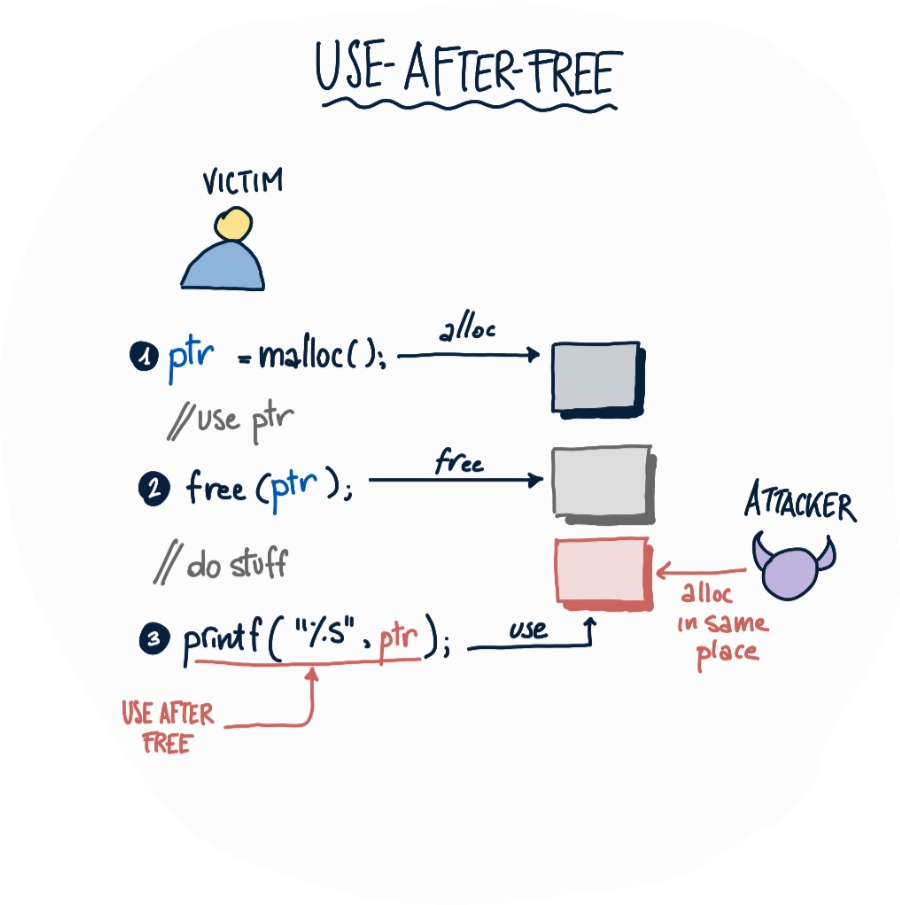 USE-AFTER-FREE
VICTIM
1 ptr = malloc();
alloc
// use ptr
2 free (ptr);
free
ATTACKER
// do stuff
alloc
in same
place
3 printf("%s", ptr);
use
USE AFTER
FREE